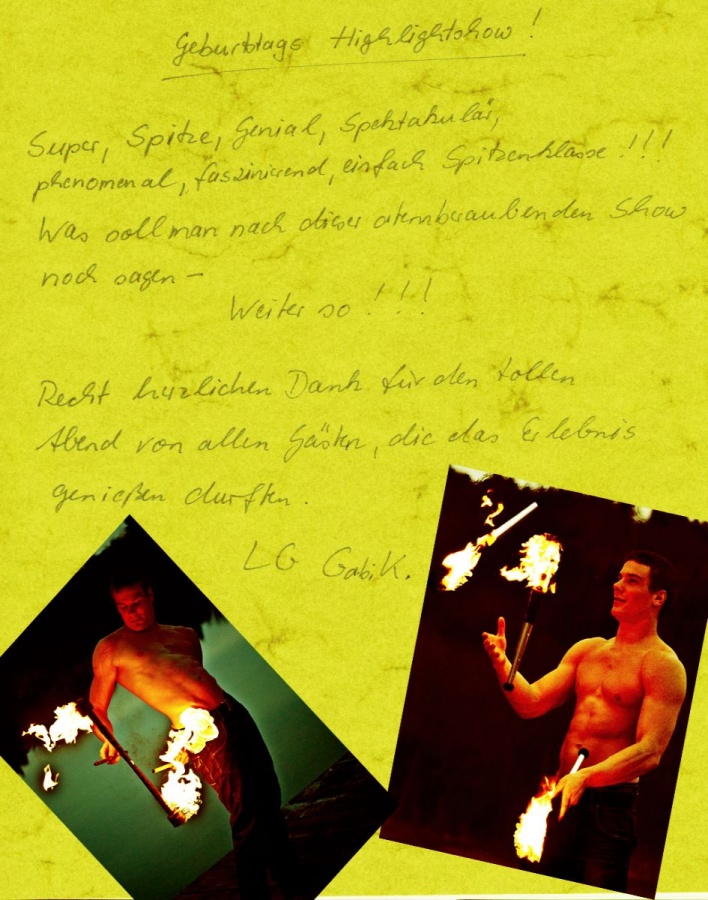 Geburtstags Highlightshow!
Super, Spitze, Genial, Spektakulär,
phenomenal, faszinierend, einfach Spitzenklasse!!!
Was soll man nach dieser atemberaubenden Show
noch sagen -
Weiter so!!!
Recht herzlichen Dank für den tollen
Abend von allen Gästen, die das Erlebnis
genießen durften.
LG Gabi K.